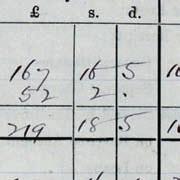 £ s. d.
167 16 5
52 2 .
219 18 5